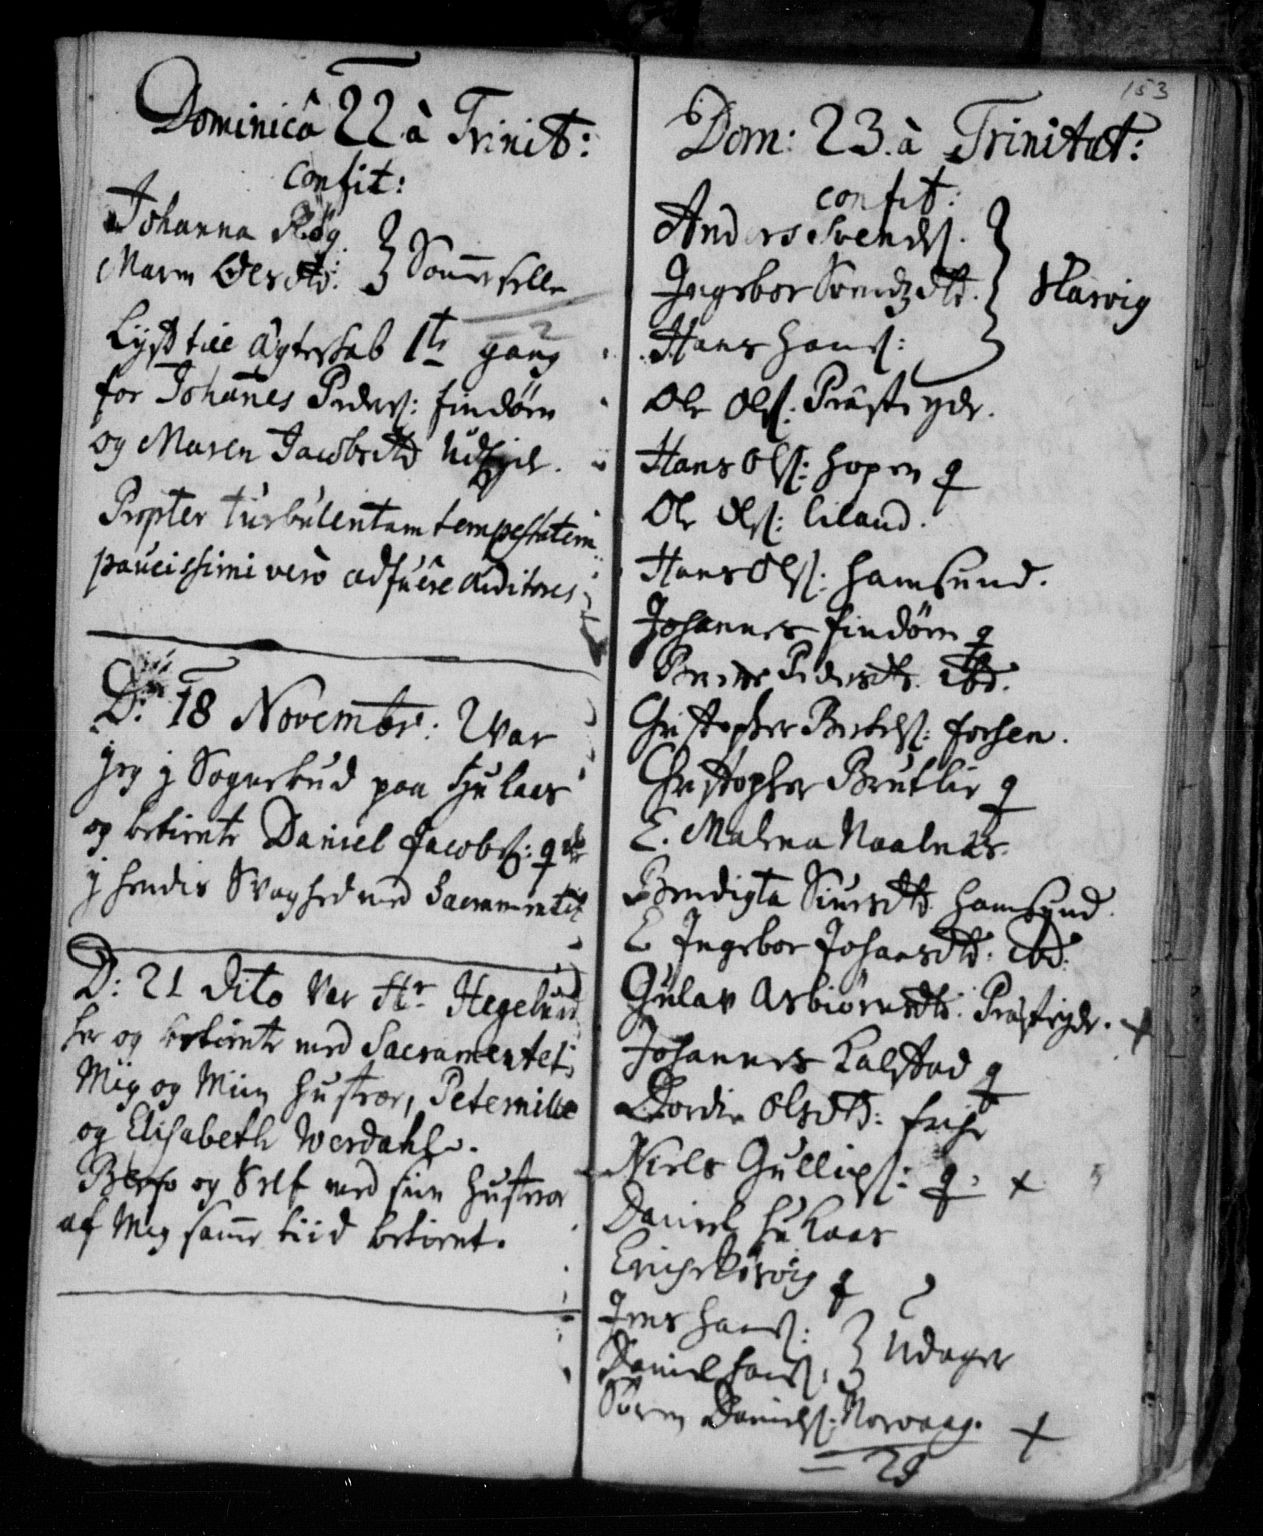 Dominica 22 à Trinit:
confit:
Johanna Røg
Maren Olsdtr: } Sommersell
= 2
Lyst till Ægteskab 1te gang
for Johannes Peders: Findøen
og Maren Jacobsdtr
Propter turbulentam tempestatem
paucissimi vero adfuere auditores
D: 18 Novembr: Var
jeg j Sognebud paa Hulaas
og betiente Daniel Jacobs: q
j hendis Svaghed med Sacramentet
D: 21 dito var Hr Hegelund
her og betiente med Sacramentet
Mig og Miin Hustroe, Peternille
og Elisabeth Werdahl.
og Self med sin Hustroe
af Mig samme tiid betient.
153
Dom: 23 à Trinitat:
confit:
Anders Svends:
Ingebor Svendzdtr: } Karvig
Hans Hans:
Ole Ols: Præsteyde.
Hans Ols: Hopen q
Ole Ols: Liland.
Hans Ols: Hamsund.
Johannes Findøen q
Pedersdtr. ibd.
Christopher Bertels: Forsen.
Christopher Brutlie q
E. Malena Naalnes.
Bendigta Siursdtr Hamsund.
E Ingebor Johansdtr. ibd:
Gulav Asbiørnsdtr: Præsteyde. +
Johannes Kalstad q
Dordie Olsdtr:
Niels Gullichs: q. +
Daniel Hulaas
Erich q
Jens Hans:
Daniel Hans: } Udager
Søren Daniels: Norvaag. +
= 29